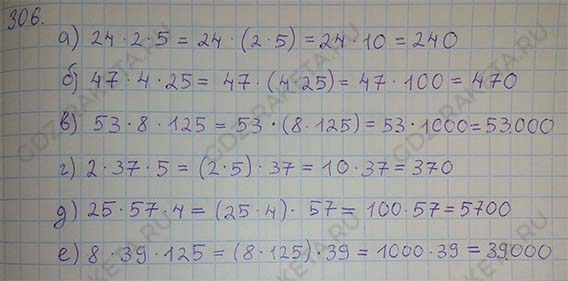 306.
а) 24 · 2 · 5 = 24 · (2 · 5) = 24 · 10 = 240
б) 47 · 4 · 25 = 47 · (4 · 25) = 47 · 100 = 470
в) 53 · 8 · 125 = 53 · (8 · 125) = 53 · 1000 = 53.000
г) 2 · 37 · 5 = (2 · 5) · 37 = 10 · 37 = 370
д) 25 · 57 · 4 = (25 · 4) · 57 = 100 · 57 = 5700
е) 8 · 39 · 125 = (8 · 125) · 39 = 1000 · 39 = 39.000
GDZ-RAKETA.RU